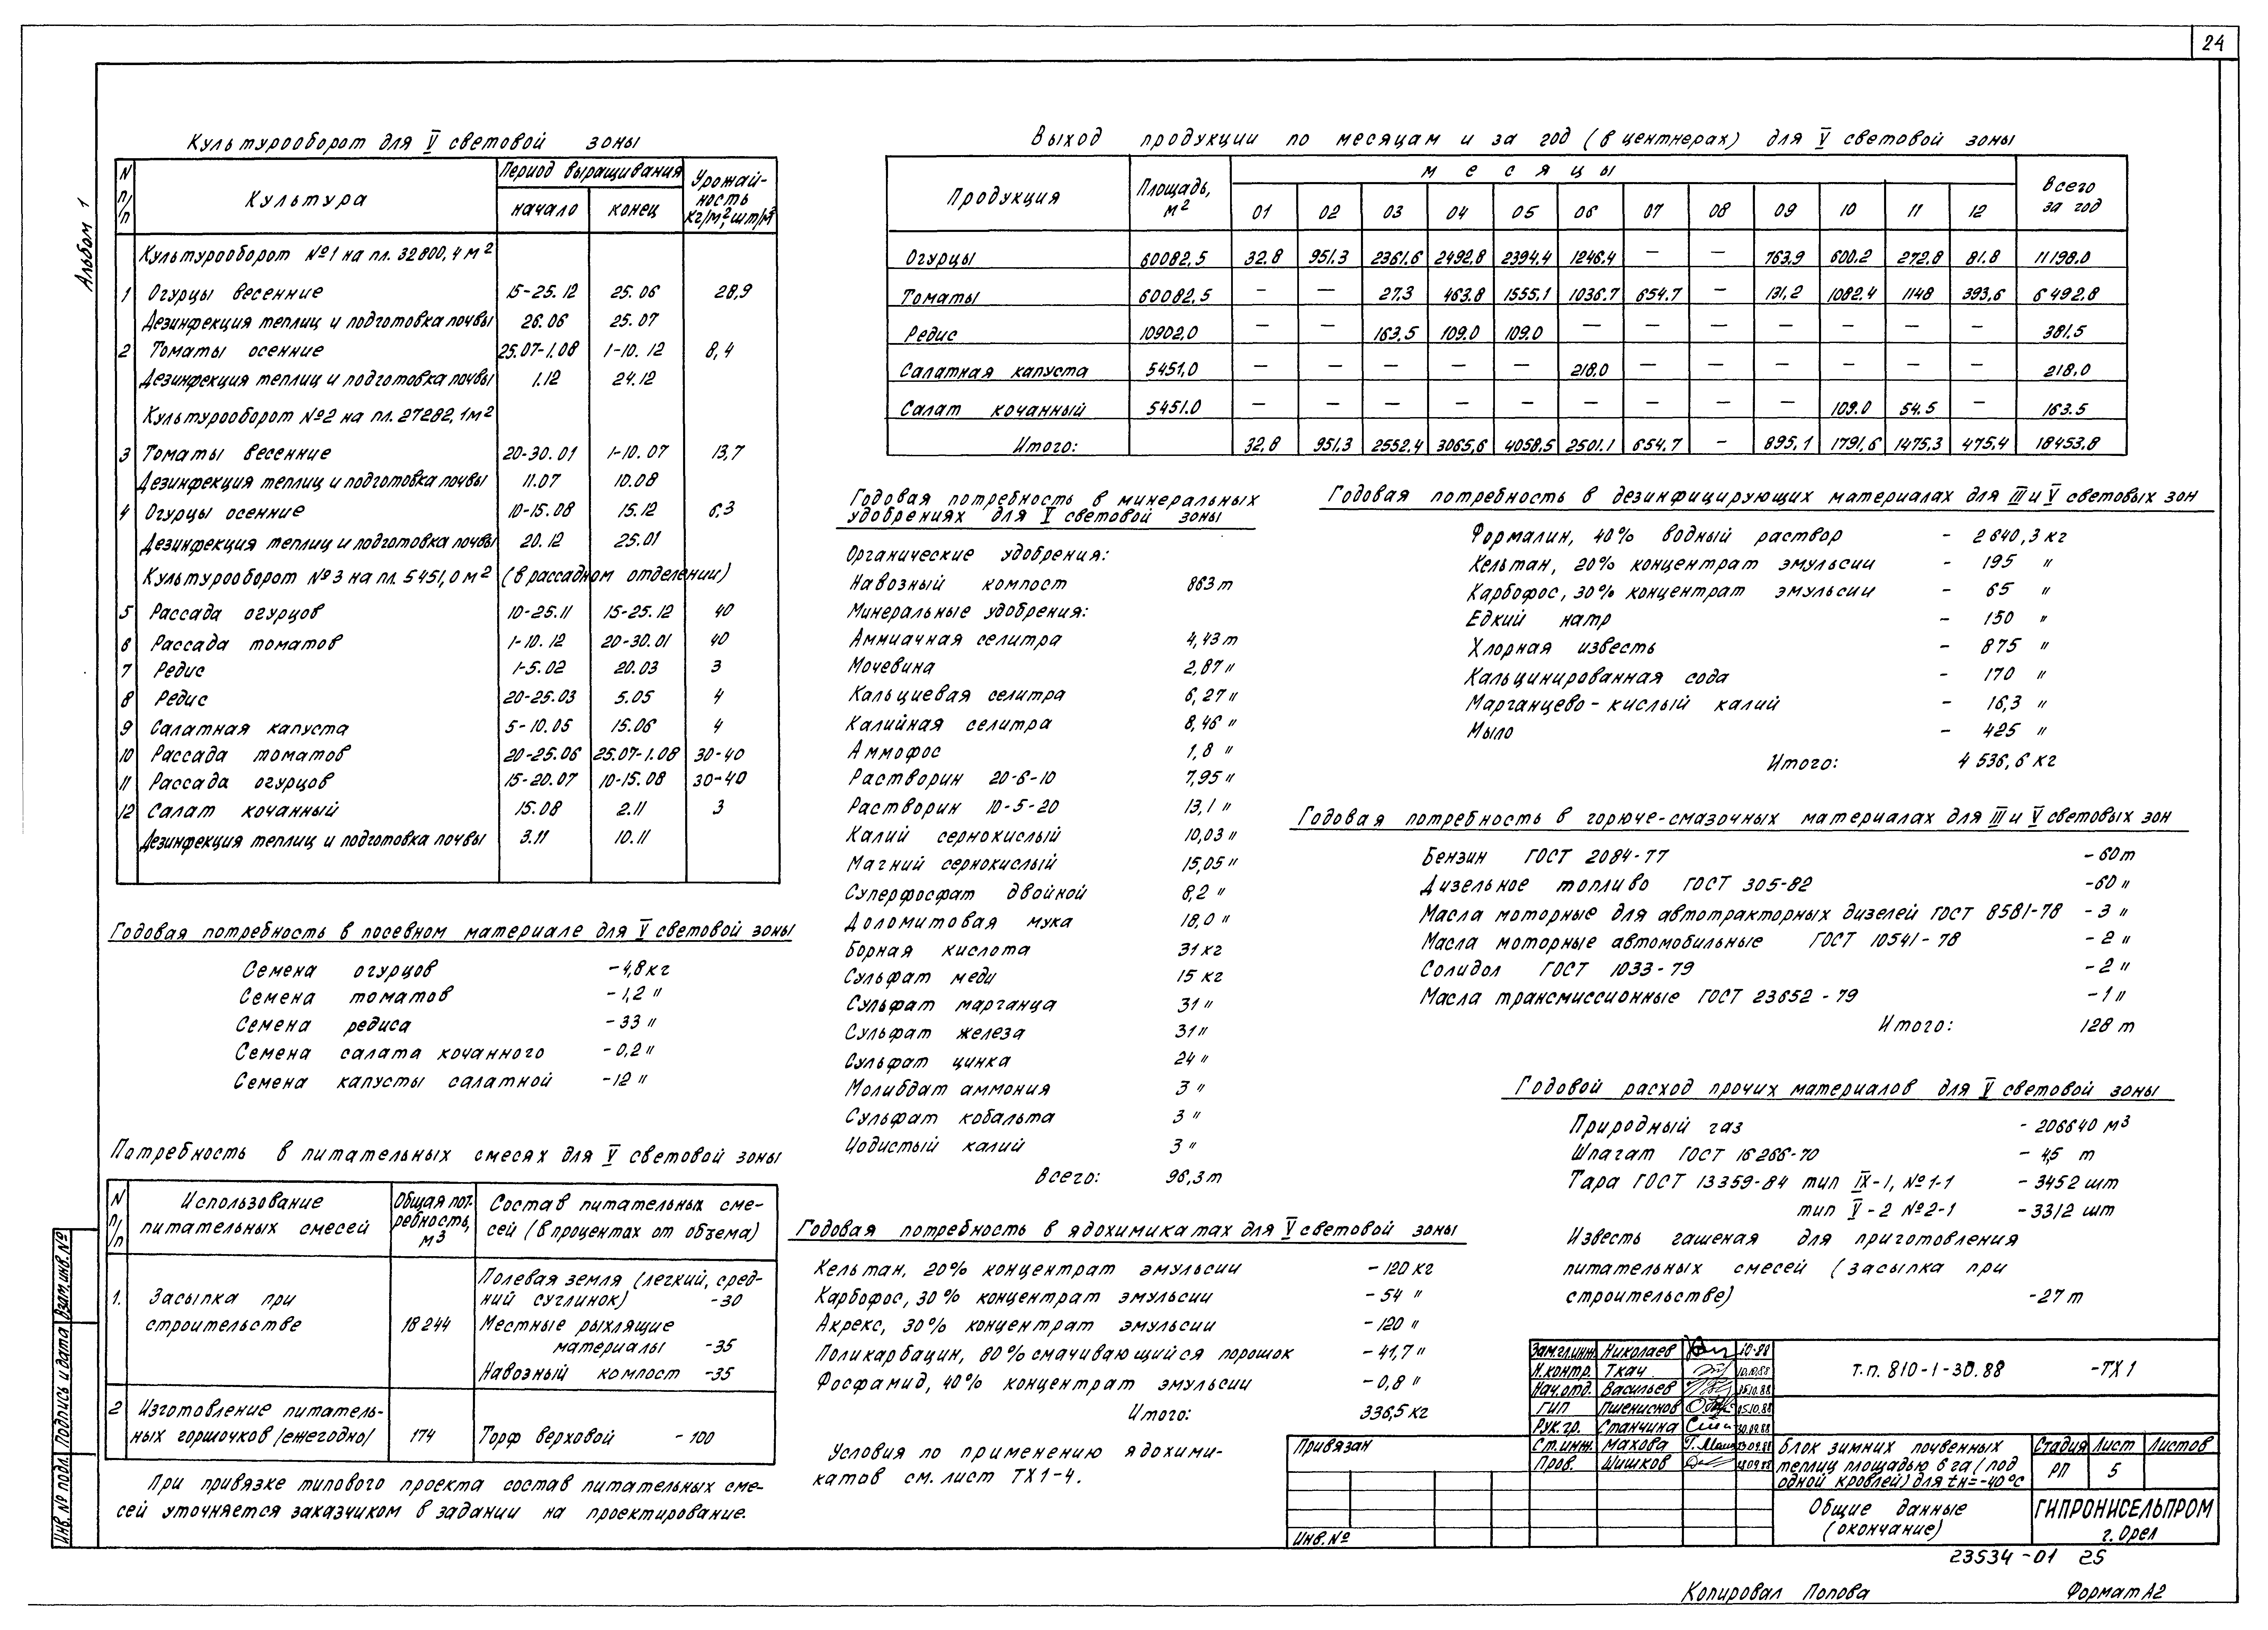 24
Альбом 1
Культурооборот для V световой зоны
N п/п | Культура | Период выращивания | Урожай-ность кг/м², шт/м²
начало | конец
Культурооборот №1 на пл. 32800,4 м²
1 Огурцы весенние 15-25.12 25.06 28,9
Дезинфекция теплиц и подготовка почвы 26.06 25.07
2 Томаты осенние 25.07-1.08 1-10.12 8,4
Дезинфекция теплиц и подготовка почвы 1.12 24.12
Культурооборот №2 на пл. 27282,1м²
3 Томаты весенние 20-30.01 1-10.07 13,7
Дезинфекция теплиц и подготовка почвы 11.07 10.08
4 Огурцы осенние 10-15.08 15.12 6,3
Дезинфекция теплиц и подготовка почвы 20.12 25.01
Культурооборот №3 на пл. 5451,0 м² (в рассадном отделении)
5 Рассада огурцов 10-25.11 15-25.12 40
6 Рассада томатов 1-10.12 20-30.01 40
7 Редис 1-5.02 20.03 3
8 Редис 20-25.03 5.05 4
9 Салатная капуста 5-10.05 15.06 4
10 Рассада томатов 20-25.06 25.07-1.08 30-40
11 Рассада огурцов 15-20.07 10-15.08 30-40
12 Салат кочанный 15.08 2.11 3
Дезинфекция теплиц и подготовка почвы 3.11 10.11
Годовая потребность в посевном материале для V световой зоны
Семена огурцов -4,8кг
Семена томатов -1,2 "
Семена редиса -33 "
Семена салата кочанного -0,2 "
Семена капусты салатной -12 "
Потребность в питательных смесях для V световой зоны
N п/п | Использование питательных смесей | Общая пот-ребность, м³ | Состав питательных сме-сей (в процентах от объема)
1. Засыпка при строительстве 18244
Полевая земля (легкий, сред-
ний суглинок) -30
Местные рыхлящие
материалы -35
Навозный компост -35
2 Изготовление питатель-
ных горшочков /ежегодно/ 174 Торф верховой - 100
При привязке типового проекта состав питательных сме-
сей уточняется заказчиком в задании на проектирование.
Выход продукции по месяцам и за год (в центнерах) для V световой зоны
Продукция | Площадь, м² | месяцы | Всего за год
01 02 03 04 05 06 07 08 09 10 11 12
Огурцы 60082,5 32.8 951.3 2361.6 2492.8 2394.4 1246.4 — — 763.9 600.2 272.8 81.8 11198.0
Томаты 60082,5 — — 27.3 463.8 1555.1 1036.7 654.7 — 131,2 1082.4 1148 393,6 6492.8
Редис 10902.0 — — 163,5 109.0 109.0 — — — — — — — 381.5
Салатная капуста 5451,0 — — — — — 218.0 — — — — — — 218.0
Салат кочанный 5451.0 — — — — — — — — — 109.0 54.5 — 163.5
Итого: 32.8 951.3 2552.4 3065,6 4058,5 2501.1 654.7 — 895.1 1791,6 1475,3 475.4 18453.8
Годовая потребность в минеральных
удобрениях для V световой зоны
Органические удобрения:
Навозный компост 863 т
Минеральные удобрения:
Аммиачная селитра 4,43 т
Мочевина 2,87 "
Кальциевая селитра 6,27 "
Калийная селитра 8,46 "
Аммофос 1,8 "
Растворин 20-6-10 7,95 "
Растворин 10-5-20 13,1 "
Калий сернокислый 10,03 "
Магний сернокислый 15,05 "
Суперфосфат двойной 8,2 "
Доломитовая мука 18,0 "
Борная кислота 31 кг
Сульфат меди 15 кг
Сульфат марганца 31 "
Сульфат железа 31 "
Сульфат цинка 24 "
Молибдат аммония 3 "
Сульфат кобальта 3 "
Иодистый калий 3 "
Всего: 96,3 т
Годовая потребность в ядохимикатах для V световой зоны
Кельтан, 20% концентрат эмульсии - 120 кг
Карбофос, 30% концентрат эмульсии - 54 "
Акрекс, 30% концентрат эмульсии - 120 "
Поликарбацин, 80% смачивающийся порошок - 41,7 "
Фосфамид, 40% концентрат эмульсии - 0,8 "
Итого: 336,5 кг
Условия по применению ядохими-
катов см. лист ТХ1-4.
Годовая потребность в дезинфицирующих материалах для III и V световых зон
Формалин, 40% водный раствор - 2640,3 кг
Кельтан, 20% концентрат эмульсии - 195 "
Карбофос, 30% концентрат эмульсии - 65 "
Едкий натр - 150 "
Хлорная известь - 875 "
Кальцинированная сода - 170 "
Марганцево-кислый калий - 16,3 "
Мыло - 425 "
Итого: 4 536,6 кг
Годовая потребность в горюче-смазочных материалах для III и V световых зон
Бензин ГОСТ 2084-77 -60 т
Дизельное топливо ГОСТ 305-82 -60 "
Масла моторные для автотракторных дизелей ГОСТ 8581-78 - 3 "
Масла моторные автомобильные ГОСТ 10541-78 - 2 "
Солидол ГОСТ 1033-79 - 2 "
Масла трансмиссионные ГОСТ 23652-79 - 1 "
Итого: 128 т
Годовой расход прочих материалов для V световой зоны
Природный газ - 206640 м³
Шпагат ГОСТ 16266-70 - 4,5 т
Тара ГОСТ 13359-84 тип IX-1, №1-1 - 3452 шт
тип V-2 №2-1 - 3312 шт
Известь гашеная для приготовления
питательных смесей (засыпка при
строительстве) -27 т
Зам.гл.инж. Николаев 10.88
Н.контр. Ткач 10.10.88
Нач.отд. Васильев 15.10.88
ГИП Пшениснов 05.10.88
Рук.гр. Станчина 30.09.88
Ст.инж. Махова 23.09.88
Пров. Шишков
т.п. 810-1-30.88 -ТХ1
Привязан
Инв.№
Блок зимних почвенных
теплиц площадью 6 га (под
одной кровлей) для tн=-40°С
Стадия Лист Листов
РП 5
Общие данные
(окончание)
ГИПРОНИСЕЛЬПРОМ
г. Орел
Инв.№ подл. Подпись и дата Взам.инв.№
23534-01 25
Копировал Попова Формат А2